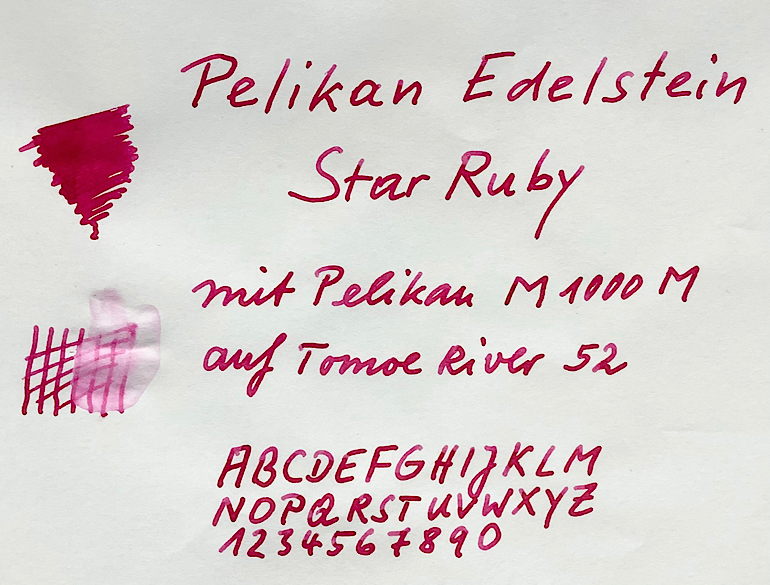 Pelikan Edelstein
Star Ruby
mit Pelikan M 1000 M
auf Tomoe River 52
ABCDEFGHIJKLM
NOPQRSTUVWXYZ
1234567890